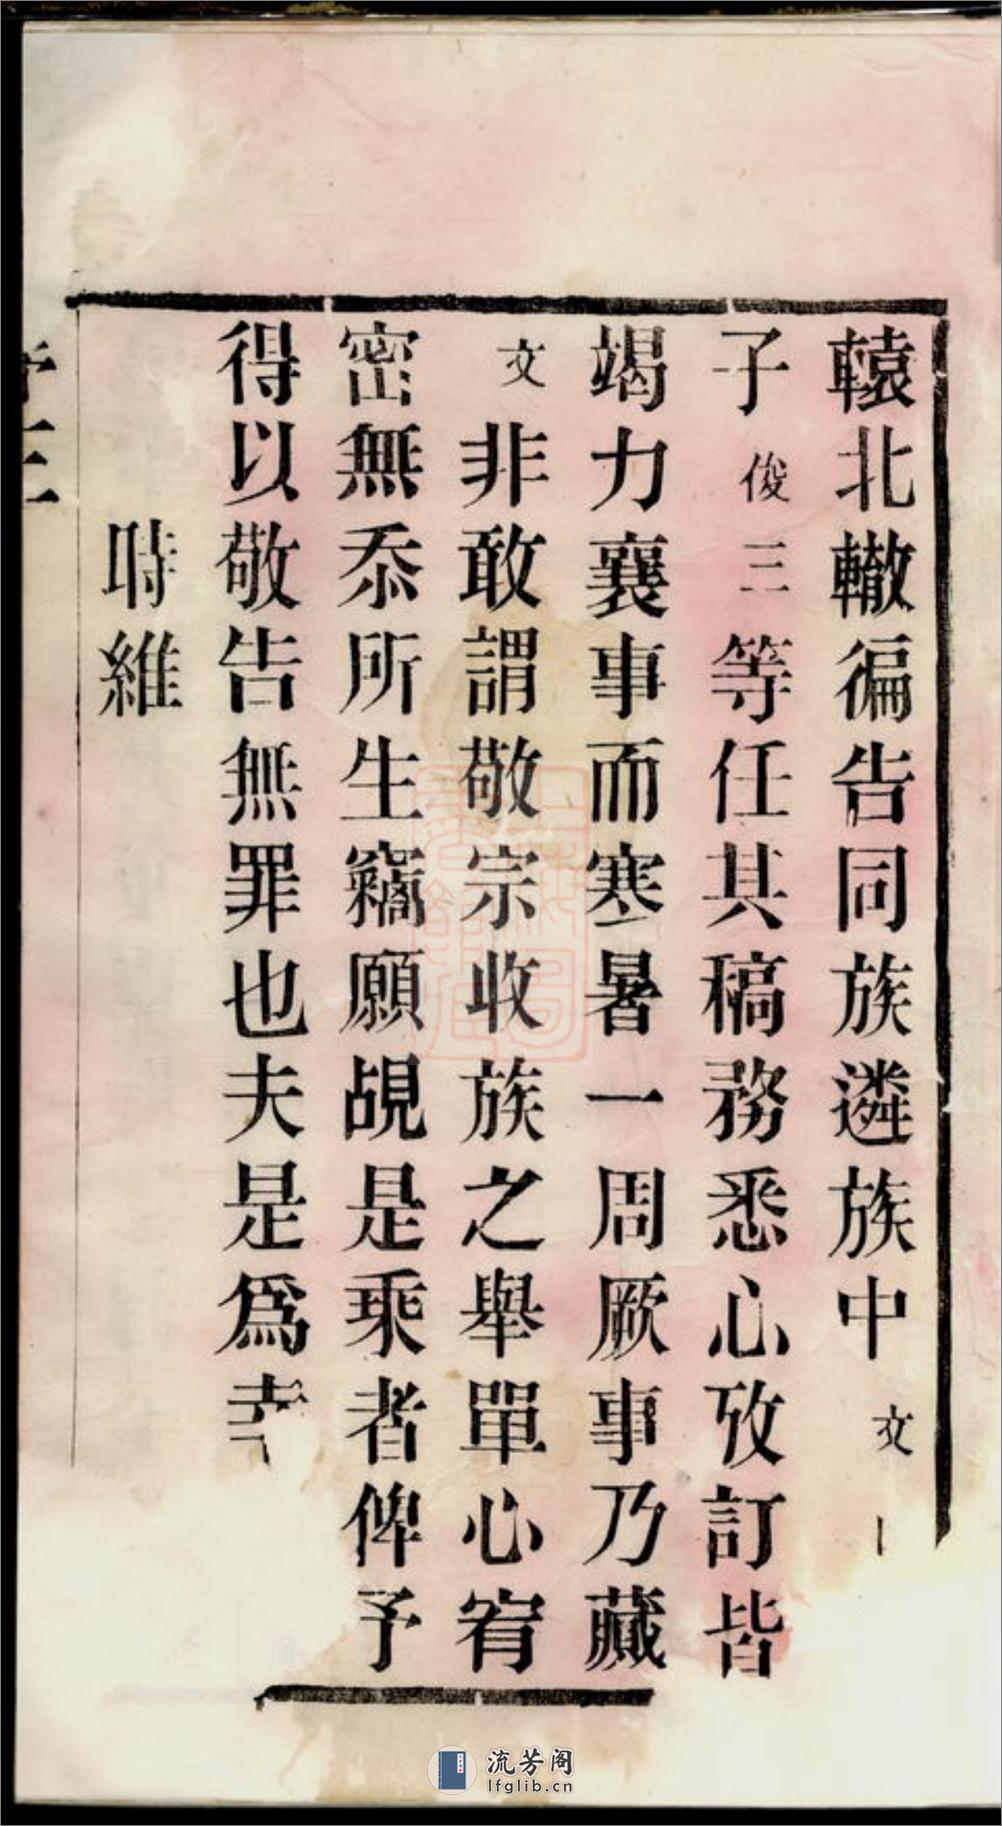 轅北轍徧告同族遴族中文
子俊三等任其稿務悉心攷訂皆
竭力襄事而寒暑一周厥事乃蕆
文非敢謂敬宗收族之舉單心宥
密無忝所生竊願覘是乘者俾予
得以敬告無罪也夫是爲
時維
流芳阁
lfglib.cn